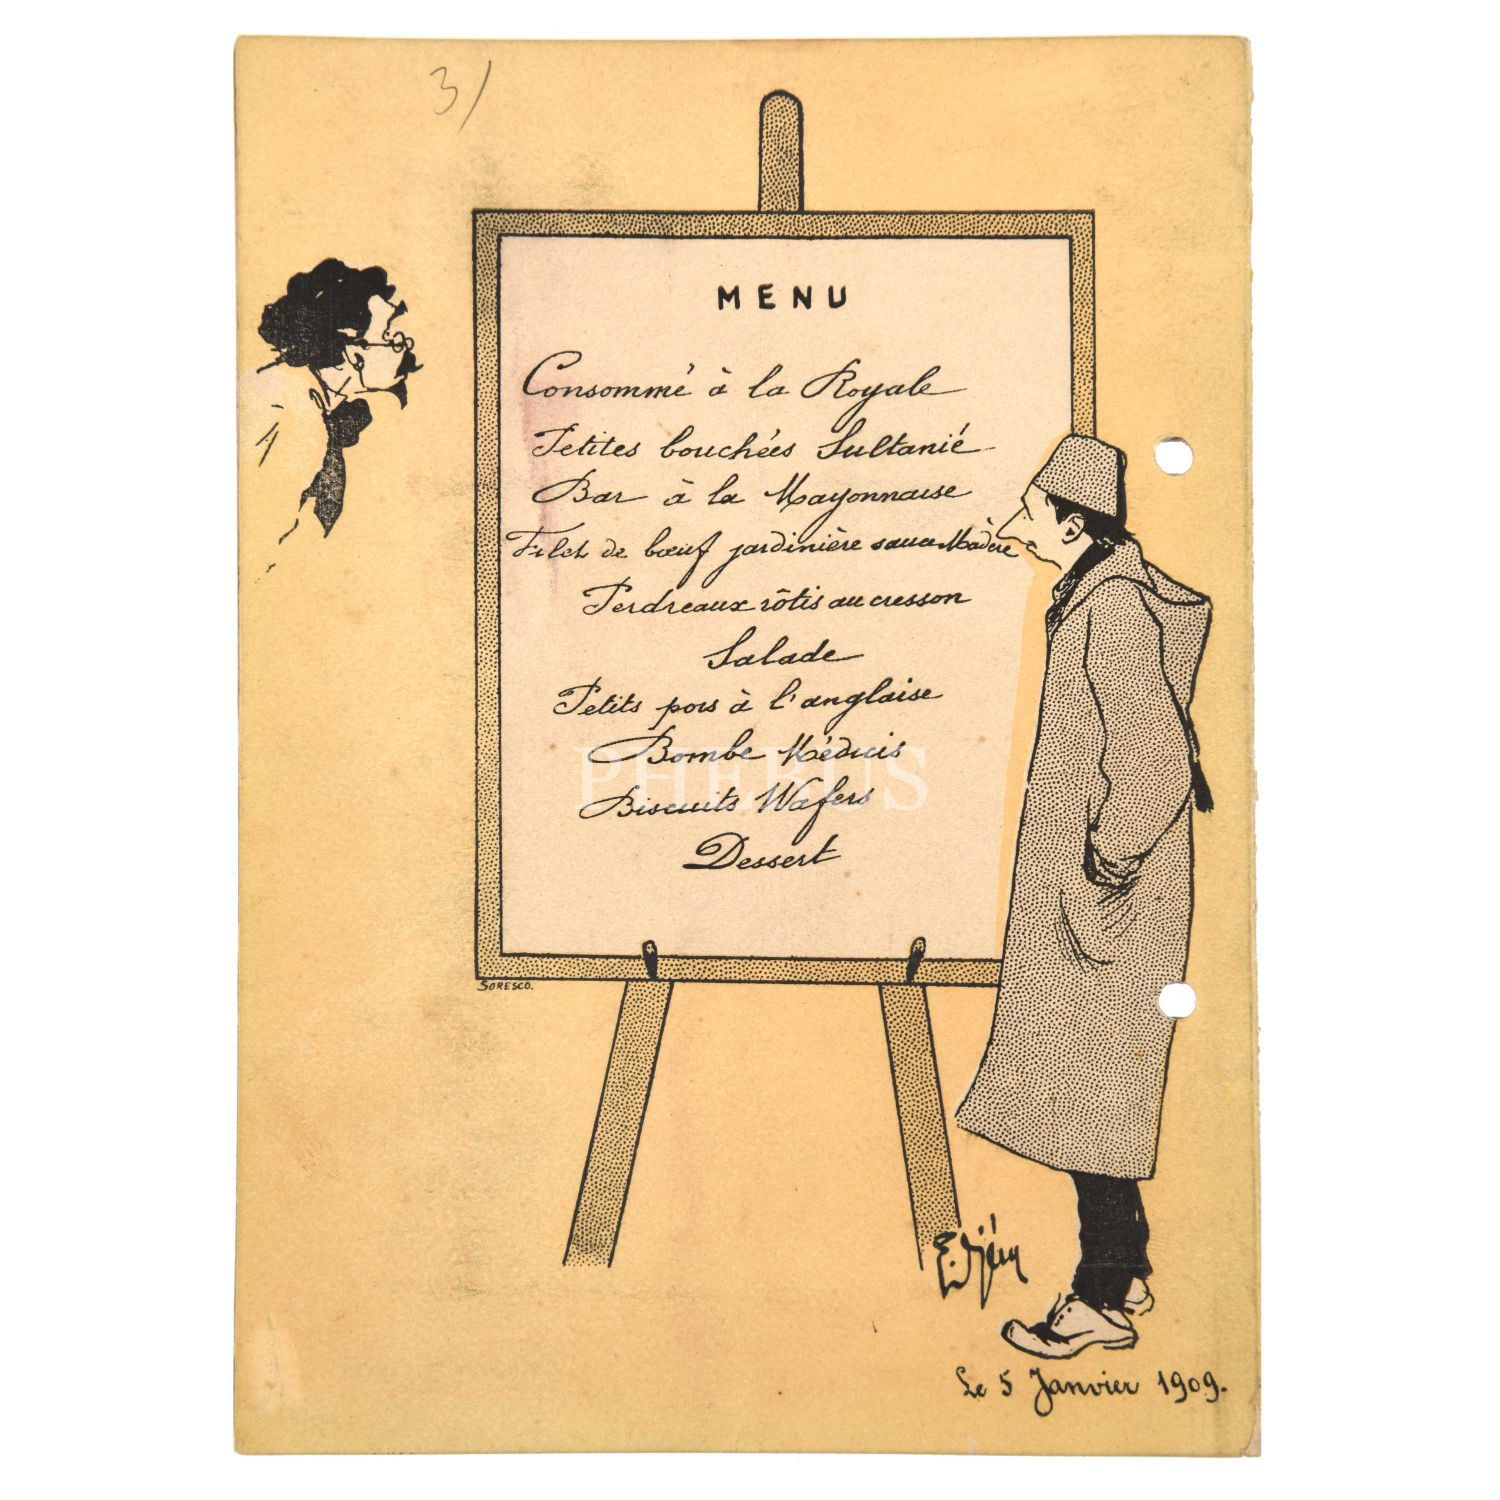 3/
MENU
Consommé à la Royale
Petites bouchées Sultanié
Bar à la Mayonnaise
Filet de bœuf jardinière sauce Madère
Perdreaux rôtis au cresson
Salade
Petits pois à l'anglaise
Bombe Médicis
PHEBUS
Biscuits Wafers
Dessert
SORESCO.
Le 5 Janvier 1909.